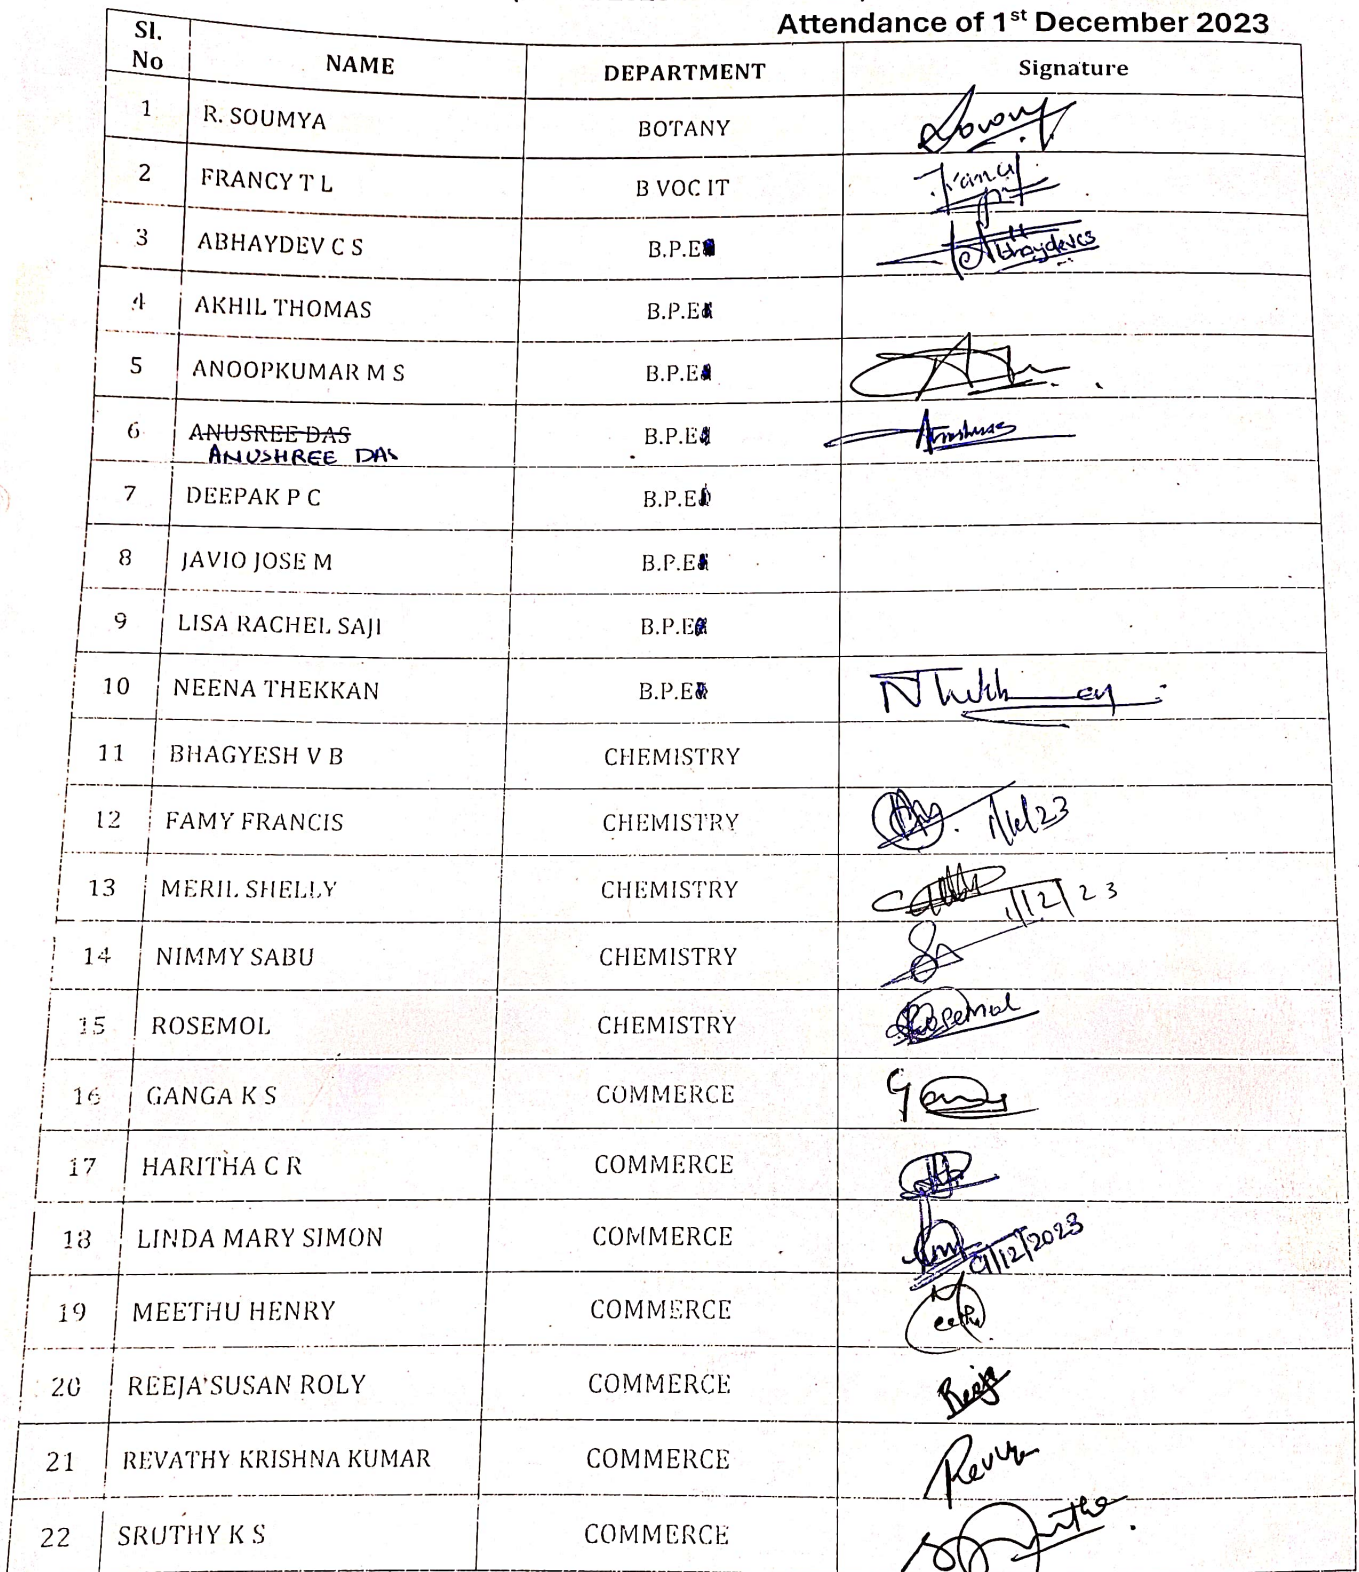 Attendance of 1st December 2023
Sl. No NAME DEPARTMENT Signature
1 R. SOUMYA BOTANY
2 FRANCY T L B VOC IT
3 ABHAYDEV C S B.P.E Abhaydevcs
4 AKHIL THOMAS B.P.E
5 ANOOPKUMAR M S B.P.E
6 ANUSREE DAS B.P.E
ANUSHREE DAS
7 DEEPAK P C B.P.E
8 JAVIO JOSE M B.P.E
9 LISA RACHEL SAJI B.P.E
10 NEENA THEKKAN B.P.E
11 BHAGYESH V B CHEMISTRY
12 FAMY FRANCIS CHEMISTRY
13 MERIL SHELLY CHEMISTRY 1/12/23
14 NIMMY SABU CHEMISTRY
15 ROSEMOL CHEMISTRY Rosemol
16 GANGA K S COMMERCE
17 HARITHA C R COMMERCE
18 LINDA MARY SIMON COMMERCE 01/12/2023
19 MEETHU HENRY COMMERCE
20 REEJA SUSAN ROLY COMMERCE Reeja
21 REVATHY KRISHNA KUMAR COMMERCE
22 SRUTHY K S COMMERCE